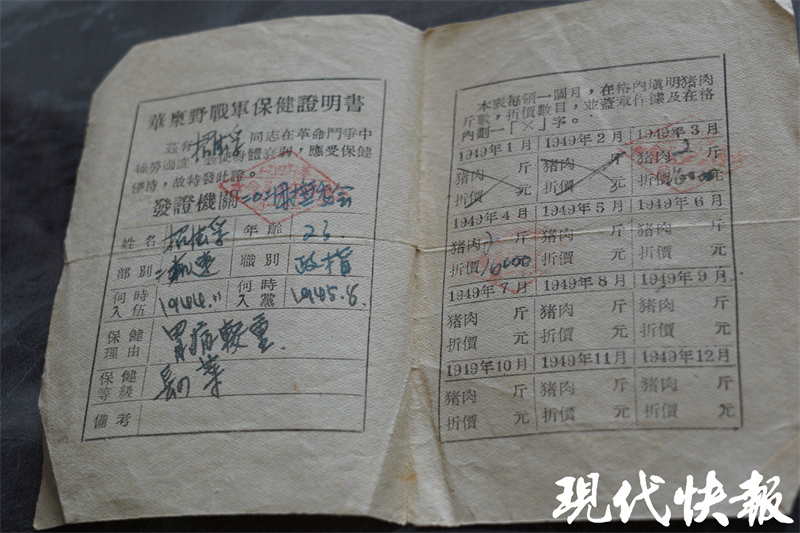 華東野戰軍保健證明書
茲有 同志在革命鬥爭中
操勞過度，致使身體衰弱，應受保健
優待，故特發此證。
發證機關 二〇二團黨委會
姓名 年齡 23
部別 二机連 職別 政指
何時入伍 1944.11 何時入黨 1945.8.
保健理由 胃病較重.
保健等級
備考
本表每領一個月，在格內填明猪肉
斤數，折價數目，並蓋章作據及在格
內劃一「×」字。
1949年1月 1949年2月 1949年3月
猪肉 斤 猪肉 斤 猪肉 2 斤
折價 元 折價 元 折價 元
1949年4月 1949年5月 1949年6月
猪肉 斤 猪肉 斤 猪肉 斤
折價 元 折價 元 折價 元
1949年7月 1949年8月 1949年9月
猪肉 斤 猪肉 斤 猪肉 斤
折價 元 折價 元 折價 元
1949年10月 1949年11月 1949年12月
猪肉 斤 猪肉 斤 猪肉 斤
折價 元 折價 元 折價 元
現代快報